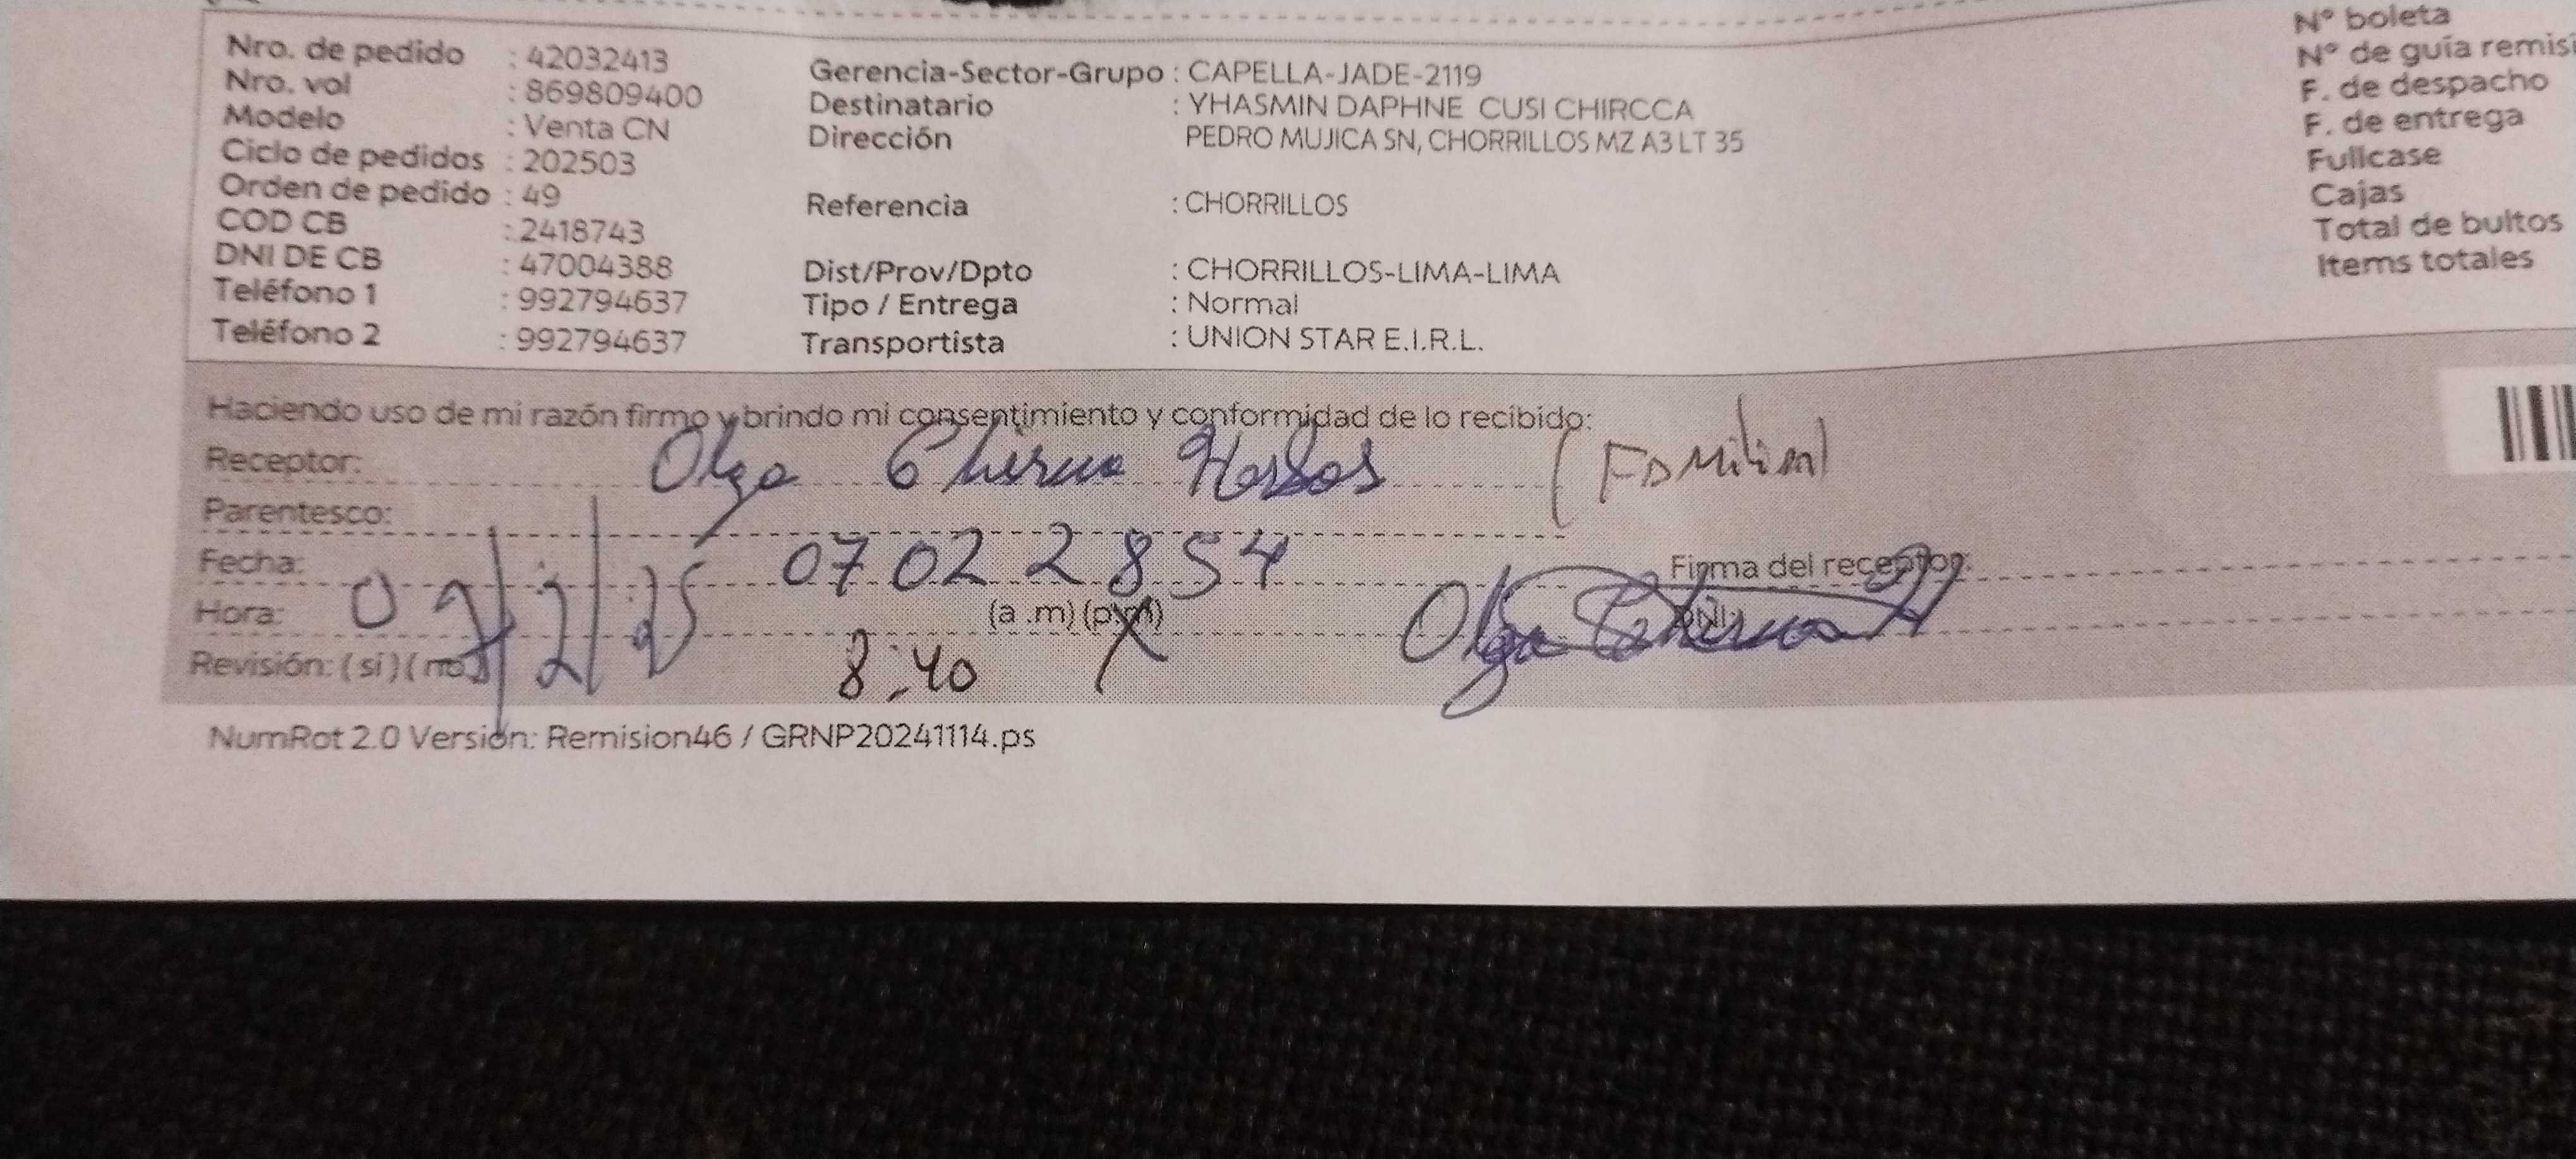 Nro. de pedido : 42032413
Nro. vol : 869809400
Modelo : Venta CN
Ciclo de pedidos : 202503
Orden de pedido : 49
COD CB : 2418743
DNI DE CB : 47004388
Teléfono 1 : 992794637
Teléfono 2 : 992794637
Gerencia-Sector-Grupo : CAPELLA-JADE-2119
Destinatario : YHASMIN DAPHNE CUSI CHIRCCA
Dirección PEDRO MUJICA SN, CHORRILLOS MZ A3 LT 35
Referencia : CHORRILLOS
Dist/Prov/Dpto : CHORRILLOS-LIMA-LIMA
Tipo / Entrega : Normal
Transportista : UNION STAR E.I.R.L.
N° boleta
N° de guía remisi
F. de despacho
F. de entrega
Fullcase
Cajas
Total de bultos
Items totales
Haciendo uso de mi razón firmo y brindo mi consentimiento y conformidad de lo recibido:
Receptor: Olga
Parentesco:
Fecha: 07 02 2854
Firma del receptor:
Hora: (a .m) (p.m) DNI:
Revisión: (si) (no) 8:40
NumRot 2.0 Versión: Remision46 / GRNP20241114.ps